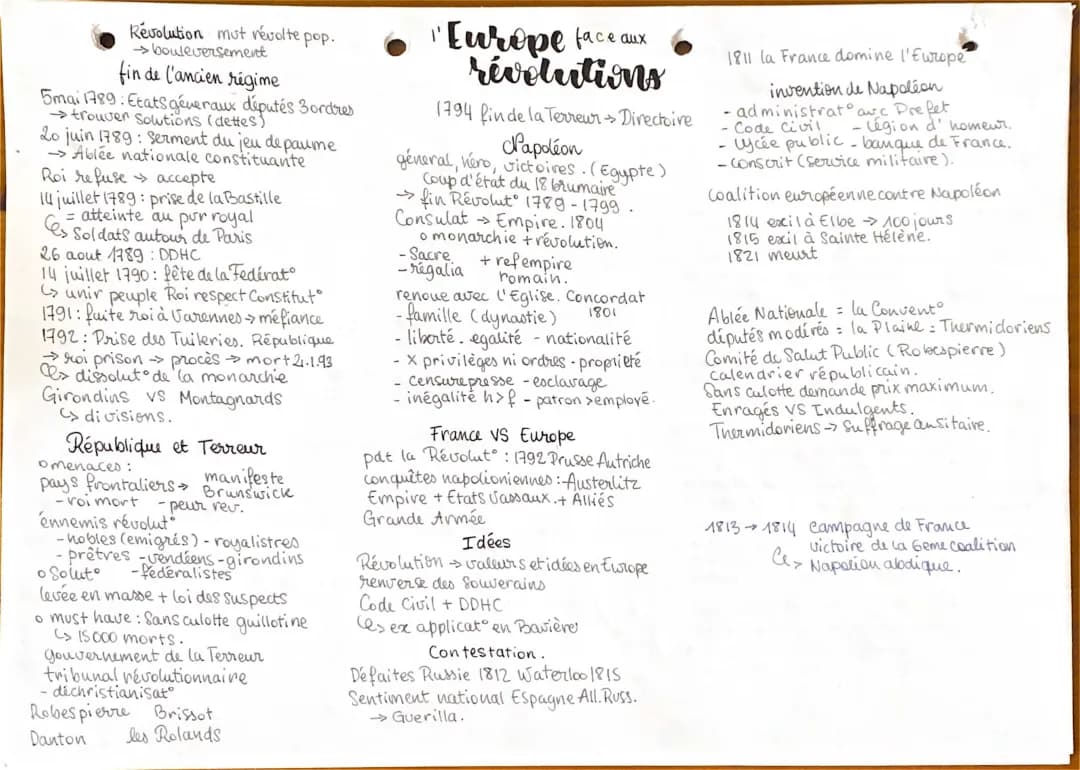 Révolution mvt révolte pop.
→ bouleversement
fin de l'ancien régime
5 mai 1789 : Etats géneraux députés 3 ordres
→ trouver solutions (dettes)
20 juin 1789 : Serment du jeu de paume
→ Ablée nationale constituante
Roi refuse → accepte
14 juillet 1789 : prise de la Bastille
= atteinte au pvr royal
↳ Soldats autour de Paris
26 aout 1789 : DDHC
14 juillet 1790 : fête de la Fédérat°
↳ unir peuple Roi respect Constitut°
1791 : fuite roi à Varennes → méfiance
1792 : Prise des Tuileries. République
→ roi prison → procès → mort 21.1.93
↳ dissolut° de la monarchie
Girondins VS Montagnards
↳ divisions.
République et Terreur
o menaces :
pays frontaliers → manifeste Brunswick
- roi mort - peur rev.
énnemis révolut°
- nobles (emigrés) - royalistres
- prêtres - vendéens - girondins
- fédéralistes
o Solut°
levée en masse + loi des suspects
o must have : Sans culotte guillotine
↳ 15000 morts.
gouvernement de la Terreur
tribunal révolutionnaire
- déchristianisat°
Robespierre Brissot
Danton les Rolands
l'Europe face aux
révolutions
1794 fin de la Terreur → Directoire
Napoléon
général, héro, victoires. (Egypte)
Coup d'état du 18 brumaire
→ fin Révolut° 1789 - 1799.
Consulat → Empire. 1804
o monarchie + révolution.
- Sacre + ref empire
- régalia romain.
renoue avec l'Eglise. Concordat
1801
- famille (dynastie)
- liberté. egalité - nationalité
- X privilèges ni ordres - propriété
- censure presse - esclavage
- inégalité h>f - patron > employé.
France VS Europe
pdt la Révolut° : 1792 Prusse Autriche
conquêtes napolioniennes : Austerlitz
Empire + Etats Vassaux. + Alliés
Grande Armée
Idées
Révolution → valeurs et idées en Europe
renverse des Souverains
Code Civil + DDHC
↳ ex applicat° en Bavière
Contestation.
Défaites Russie 1812 Waterloo 1815
Sentiment national Espagne All. Russ.
→ Guerilla.
1811 la France domine l'Europe
invention de Napoléon
- administrat° avc Prefet
- Code Civil - Légion d'honneur.
- Lycée public - banque de France.
- conscrit (service militaire).
Coalition européenne contre Napoléon
1814 exil à Elbe → 100 jours
1815 exil à Sainte Hélène.
1821 meurt
Ablée Nationale = la Convent°
députés modérés = la Plaine = Thermidoriens
Comité de Salut Public (Robespierre)
Calendrier républicain.
Sans culotte demande prix maximum.
Enragés VS Indulgents.
Thermidoriens → Suffrage ansitaire.
1813 → 1814 Campagne de France
victoire de la 6eme coalition
↳ Napolion abdique.